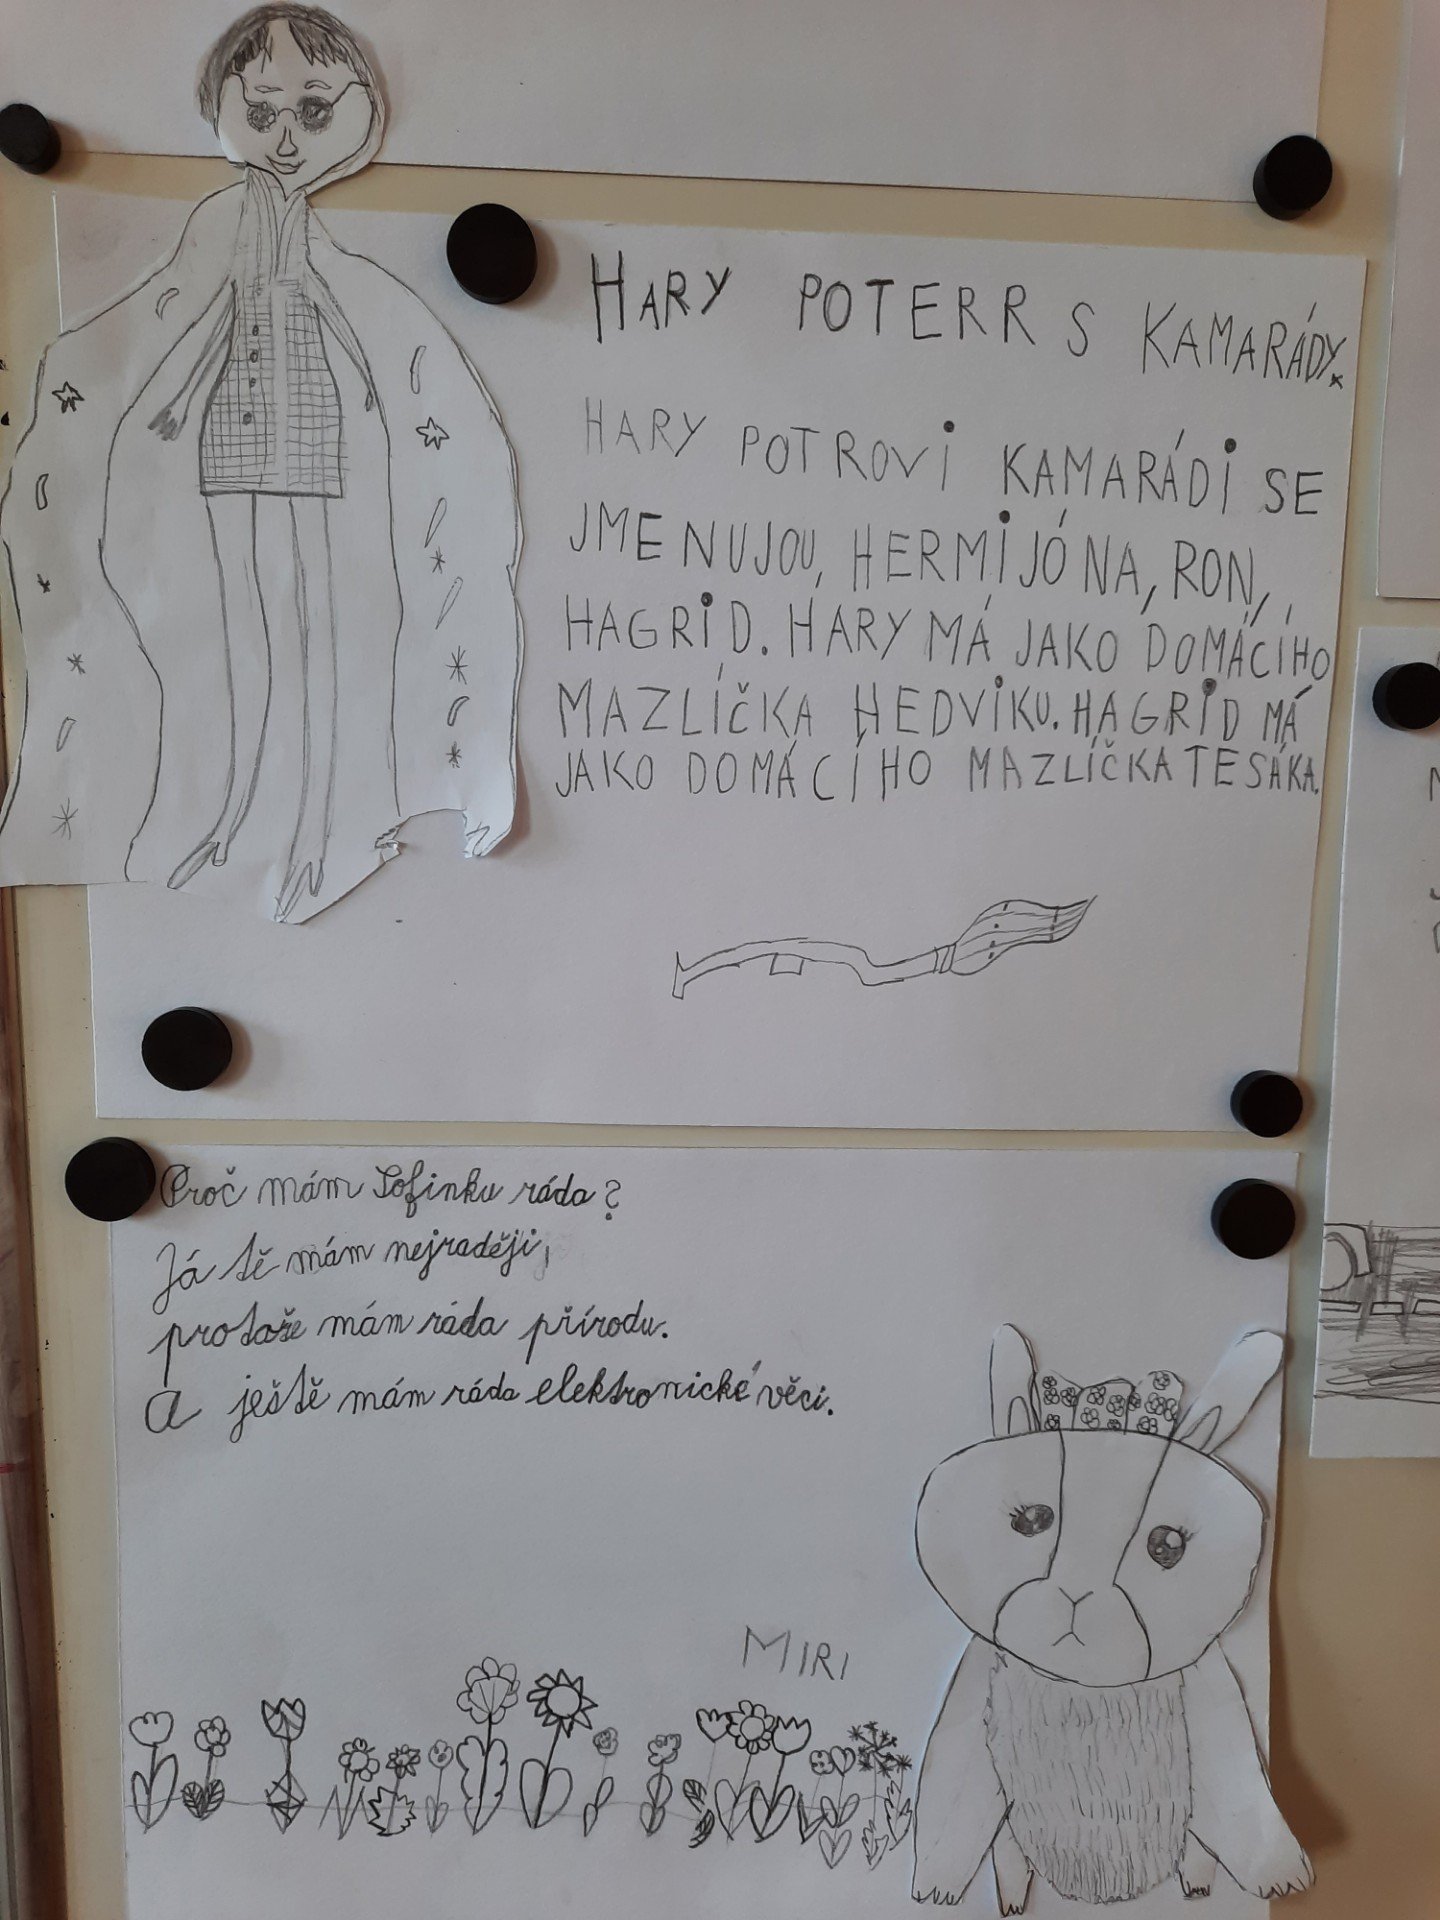 HARY POTERR S KAMARÁDY.
HARY POTROVI KAMARÁDI SE
JMENUJOU, HERMIJÓNA, RON,
HAGRID. HARY MÁ JAKO DOMÁCÍHO
MAZLÍČKA HEDVIKU. HAGRID MÁ
JAKO DOMÁCÍHO MAZLÍČKA TESÁKA.
Proč mám Sofinku ráda?
Já tě mám nejraději,
protože mám ráda přírodu.
A ještě mám ráda elektronické věci.
MIRI